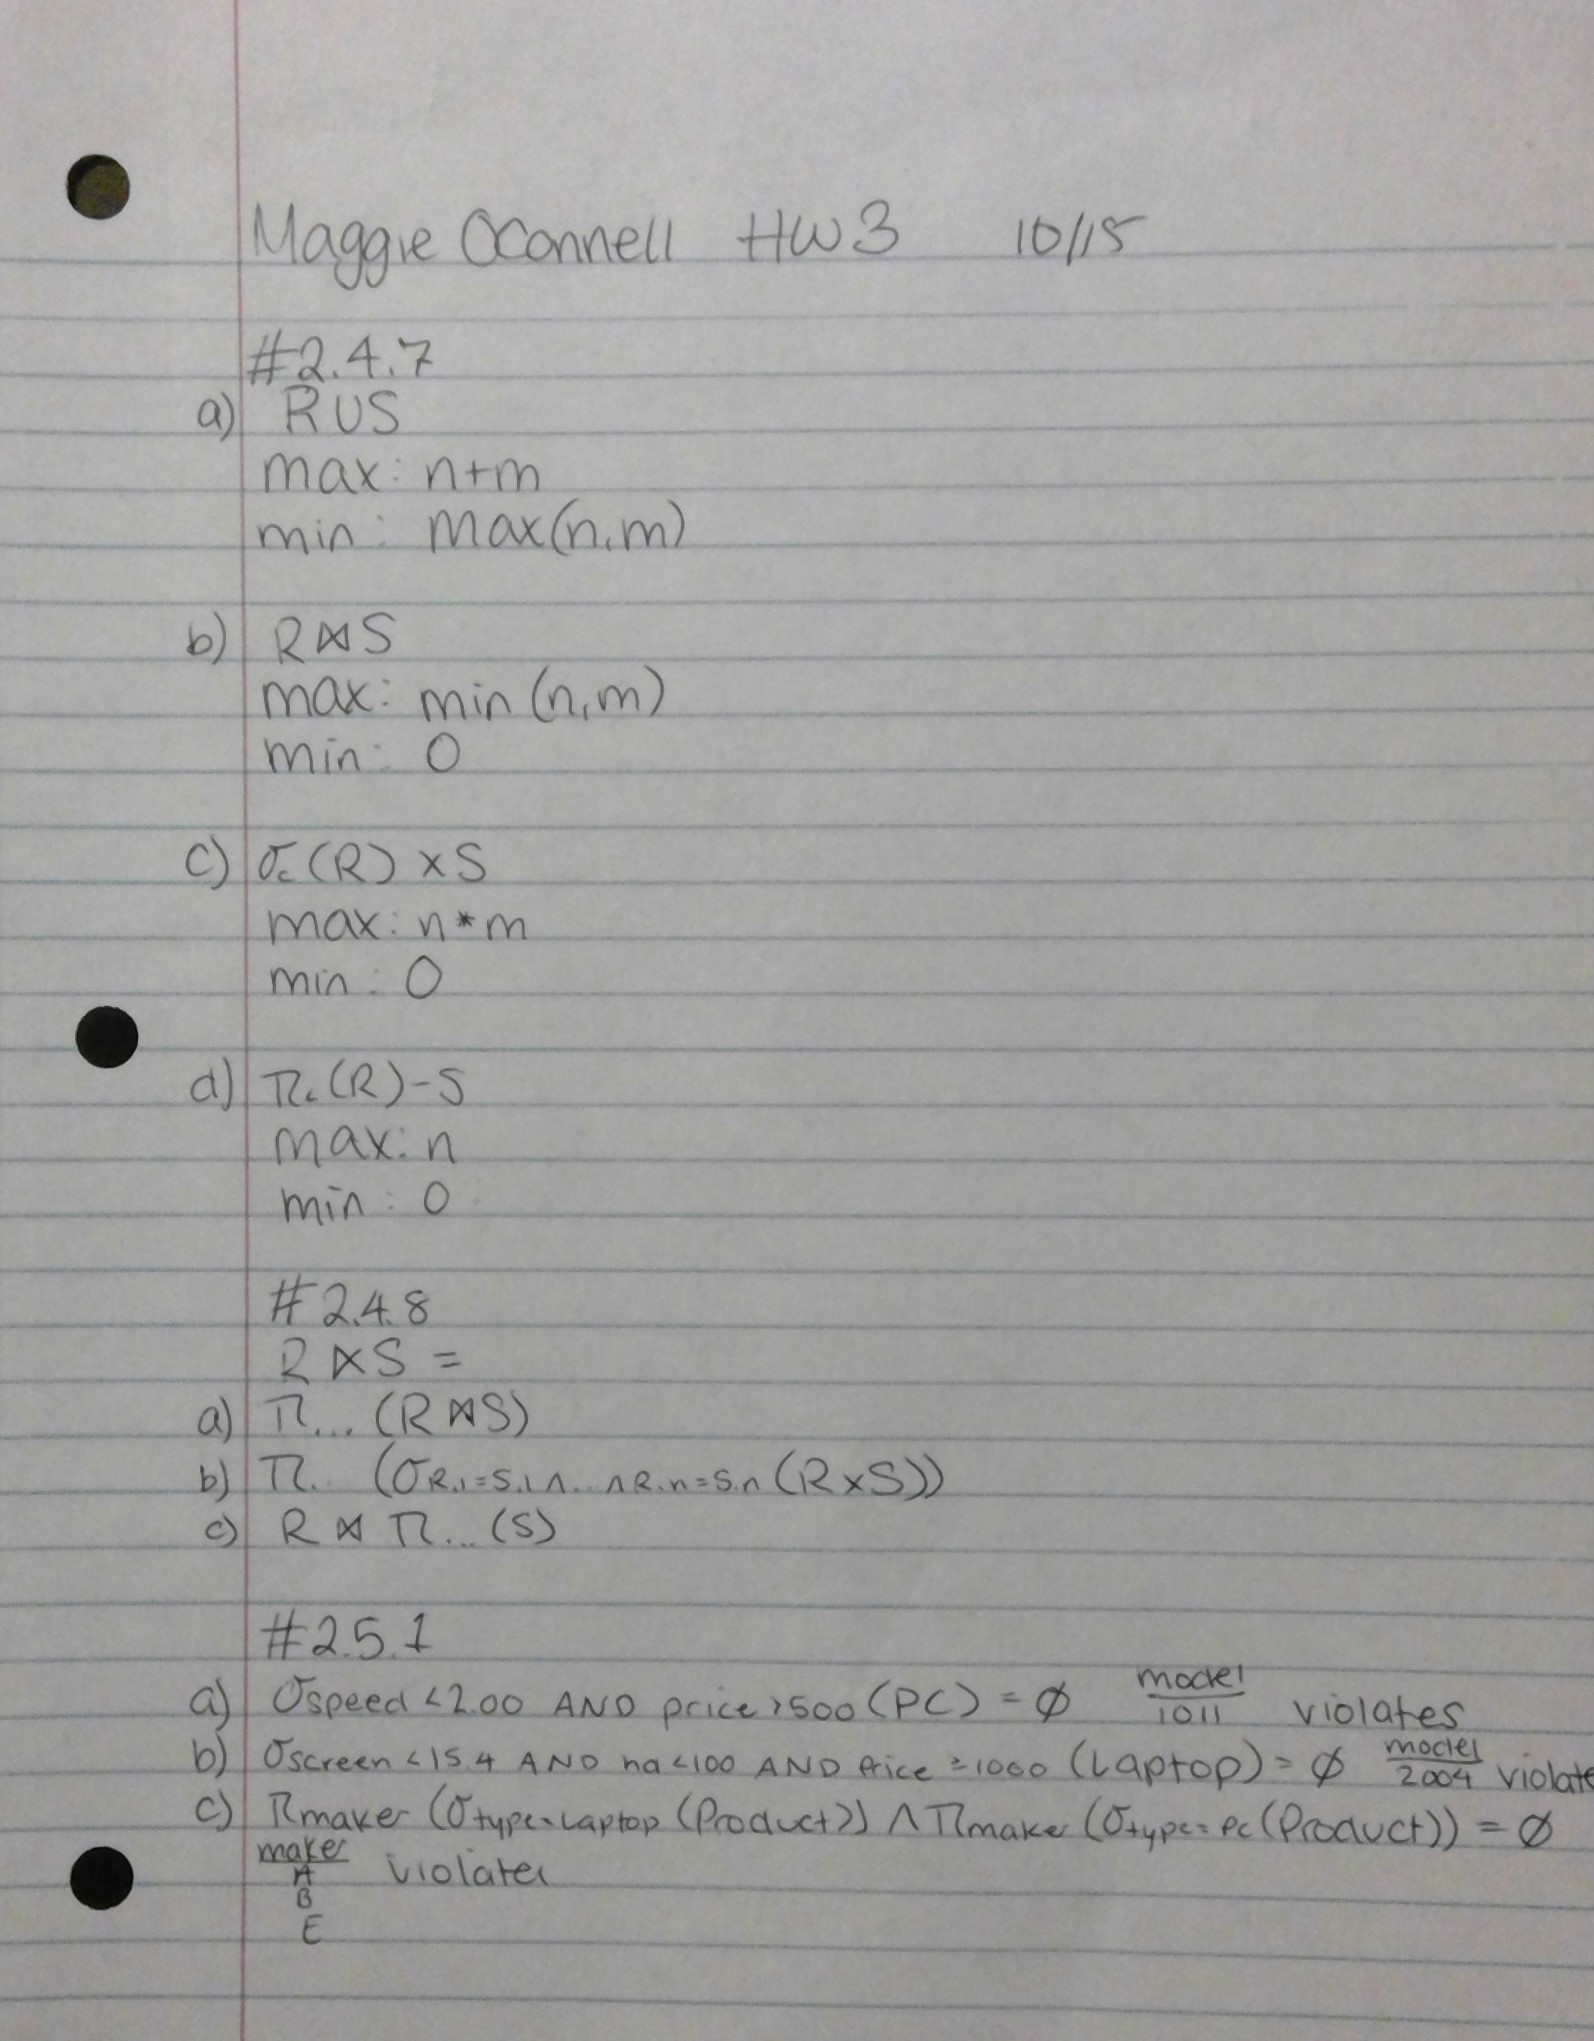 Maggie OConnell HW3 10/15
#2.4.7
a) R∪S
max: n+m
min: max(n,m)
b) R⋈S
max: min(n,m)
min: 0
c) σc(R) × S
max: n*m
min: 0
d) πL(R)-S
max: n
min: 0
#2.4.8
R⋉S =
a) π... (R⋈S)
b) π.. (σR.1=S.1∧...∧R.n=S.n (R×S))
c) R ⋈ π... (S)
#2.5.1
a) σspeed <2.00 AND price >500 (PC) = ∅ model 1011 violates
b) σscreen <15.4 AND hd <100 AND Price ≥1000 (Laptop) = ∅ model 2004 violate
c) πmaker (σtype=Laptop (Product)) ∧ πmaker (σtype=PC (Product)) = ∅
maker
A violates
B
E